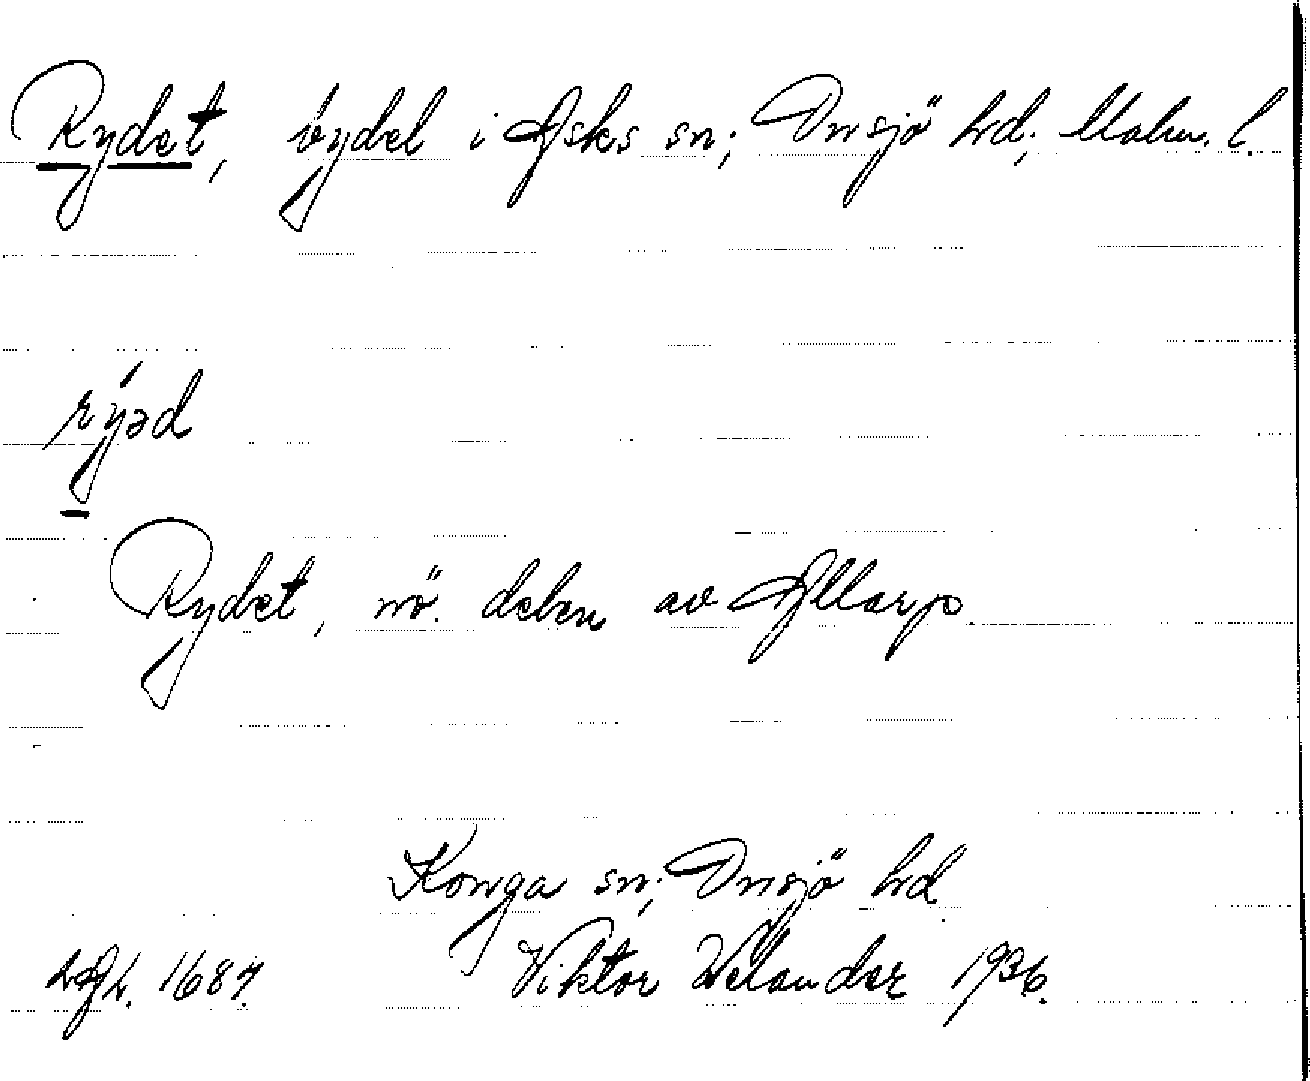 Rydet, bydel i Asks sn; Onsjö hd; Malm. l.
rýəd
Rydet, nö. delen av Allarp
Konga sn; Onsjö hd
1684. Viktor Welander 1936.